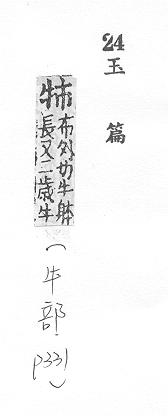 24玉篇
㸬布外切牛躰長又二歲牛(牛部p331)